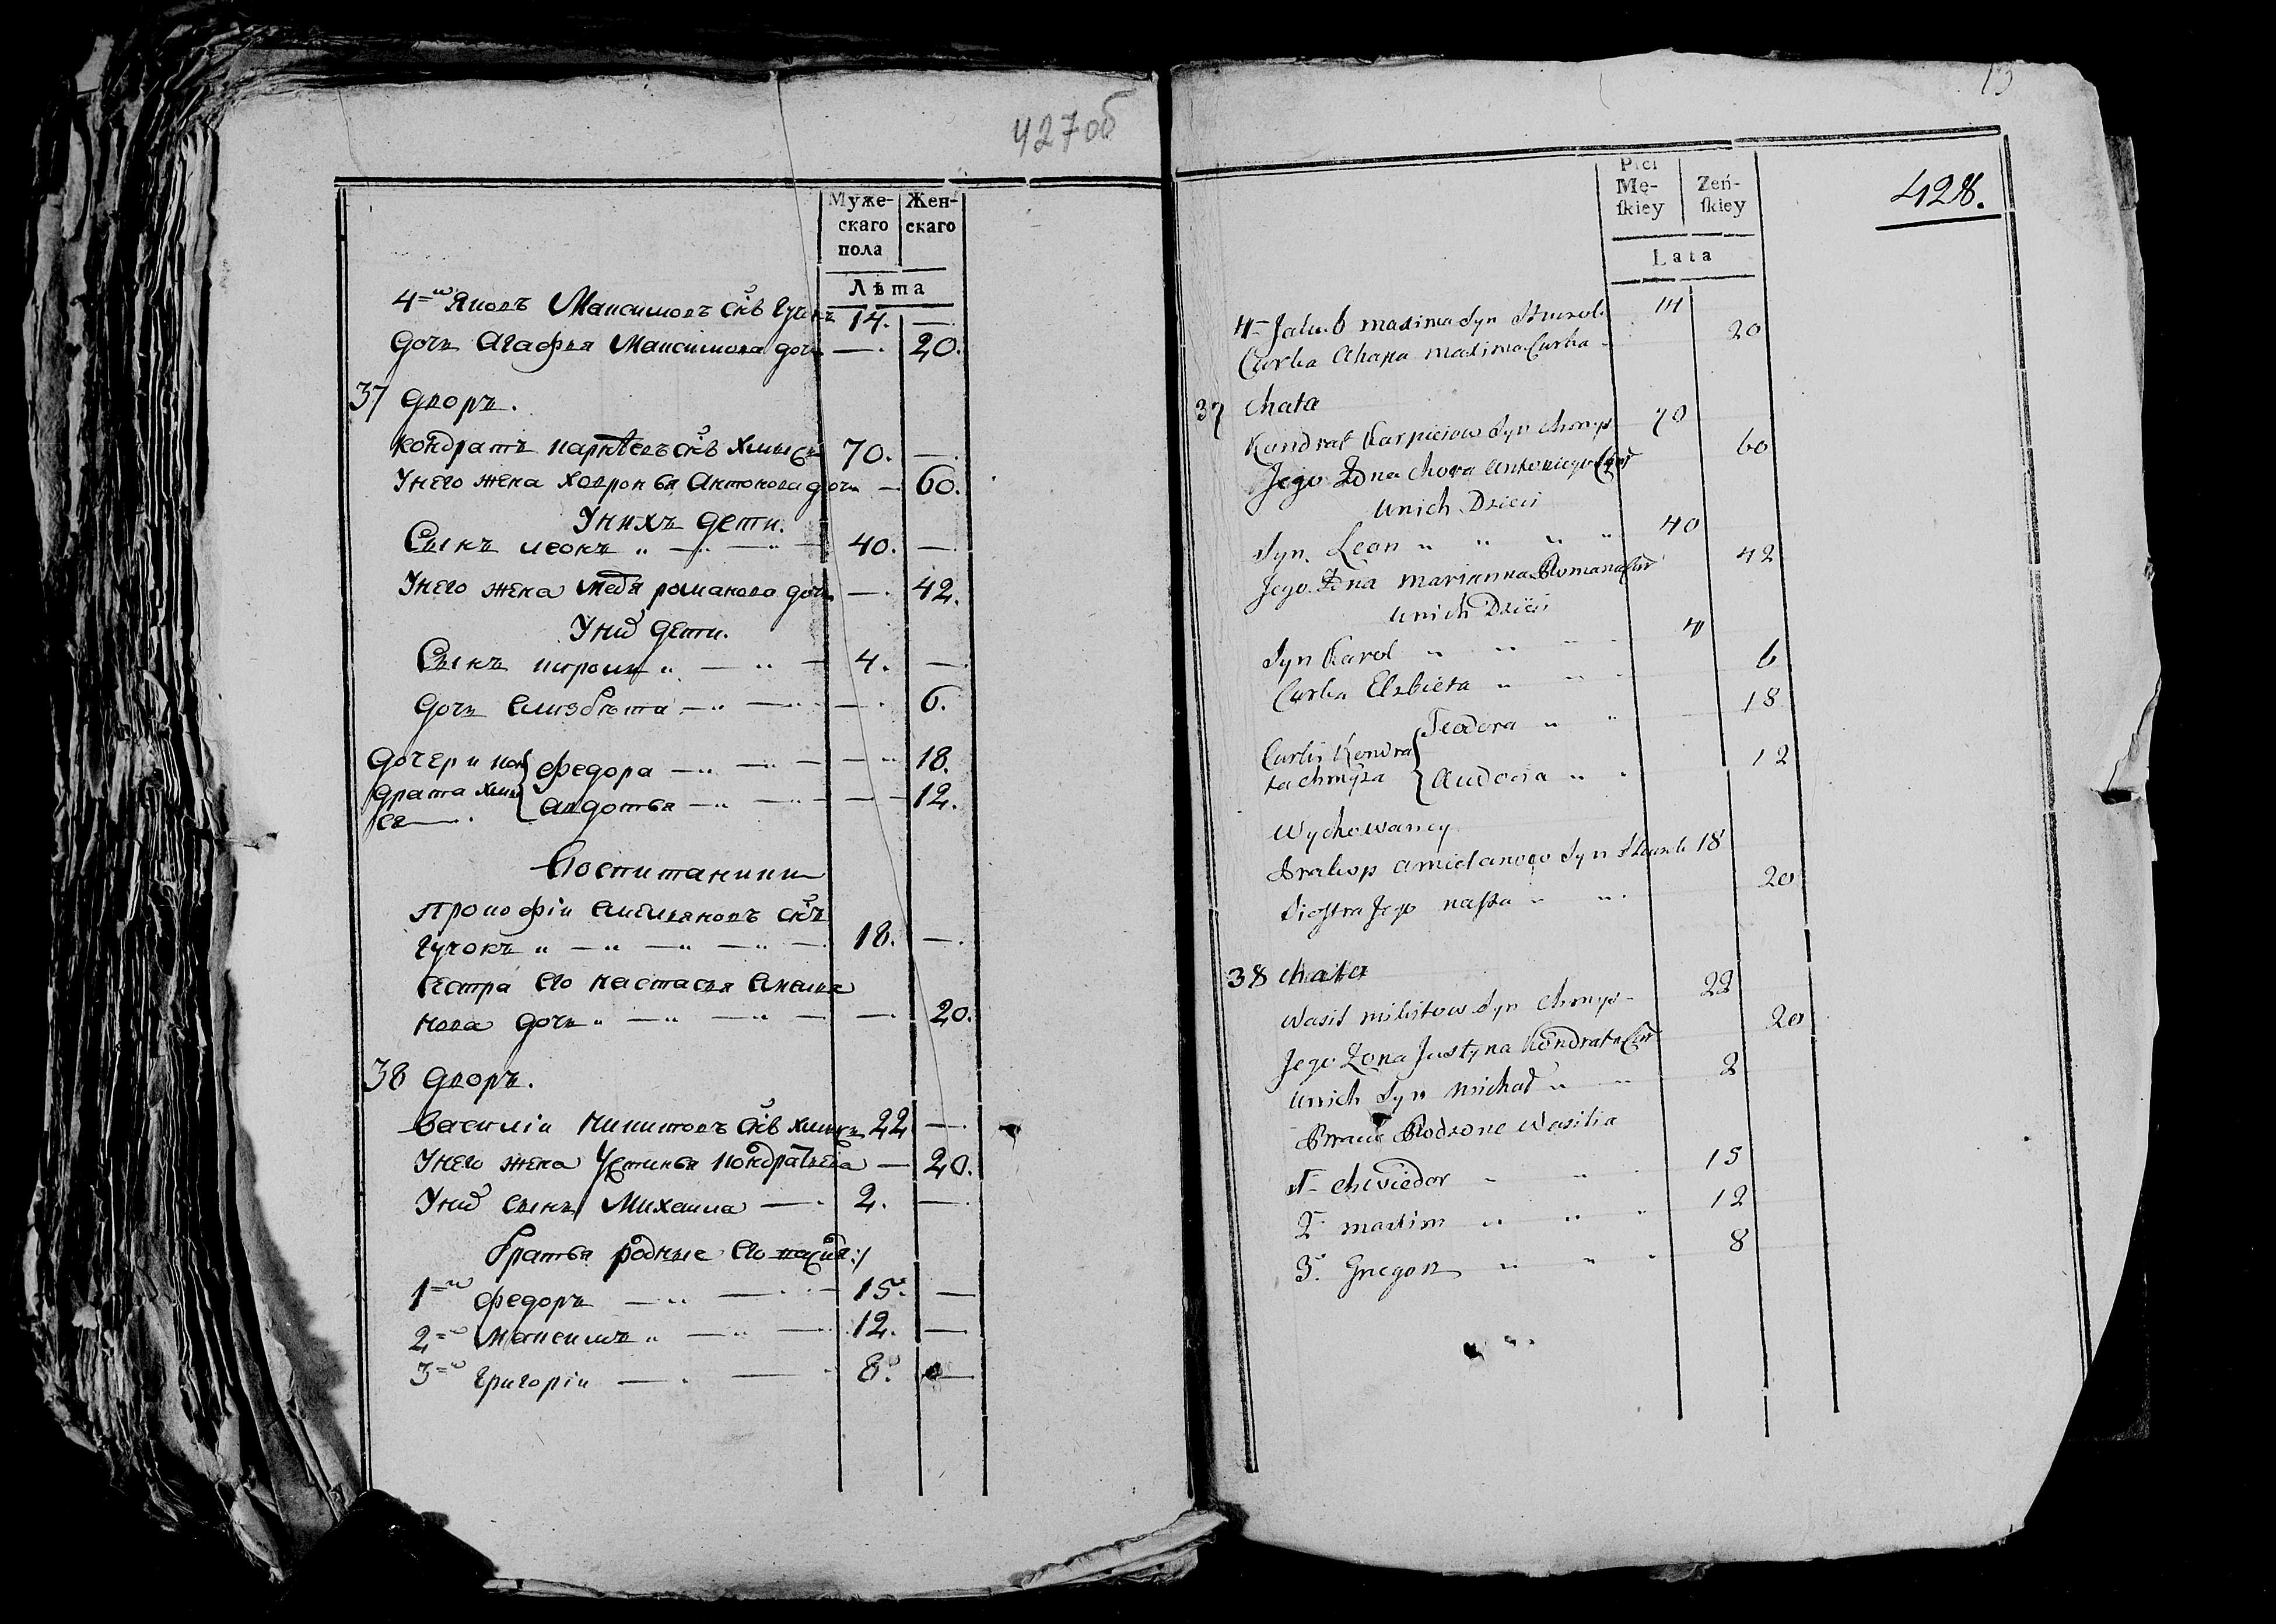 427об
Муже-
скаго
пола
Жен-
скаго
Лѣта
4=й Яковъ Максимовъ снъ 14. —
дочь Агафья Максимова дочь — 20.
37 дворъ.
Кондратъ снъ 70. —
Унего жена Ховронья Антонова дочь — 60.
Унихъ дети.
Сынъ Леонъ „ — „ — „ — 40. —
Унего жена романова дочь — 42.
Уних дети.
Сынъ „ — „ — 4. —
дочь Елизбѣта — „ — „ — 6.
дочери Кон
драта
Федора — „ — „ — 18.
Авдотья — „ — „ — 12.
Воспитаники
Прокофіи Емельяновъ снъ
Гучокъ „ — „ — „ — „ — 18. —
Сестра его настасья Емелья
нова дочь „ — „ — „ — — 20.
38 дворъ.
Василіи Никитовъ снъ 22 —
Унего жена Устинья Кондратьева — 20.
Уних сынъ Михаила — 2. —
братья родные его
1=й Федоръ — „ — 15. —
2=й Максимъ „ — „ — 12. —
3=й Григоріи — — 8. —
13
428.
Płci
Mę-
ſkiey
Zeń-
ſkiey
Lata
4 Jakub maxima Syn 14
Curka Ahapa maxima Curka 20
37 chata
Kondrat Karpieiow Syn chmyz 70
Jego Żona chowra Antoniego Cur 60
unich Dzieci
Syn Leon „ „ „ „ 40
Jego Żona marianna Romana Cur 42
unich Dzieci
Syn Karol „ „ „ 4
Curka Elzbieta „ „ 6
Curki Kondra
ta chmyza
Teodora „ „ 18
Audocia „ „ 12
Wychowancy
Prakop Syn 18
Siostra Jego nasta „ „ 20
38 chata
Wasil mikitow Syn chmyz 22
Jego Zona Justyna Kondrata Cur 20
unich Syn michał „ „ 2
Bracia Rodzone Wasilia
1 chwiedor „ „ 15
2 maxim „ „ „ 12
3. Gregorz „ „ „ 8